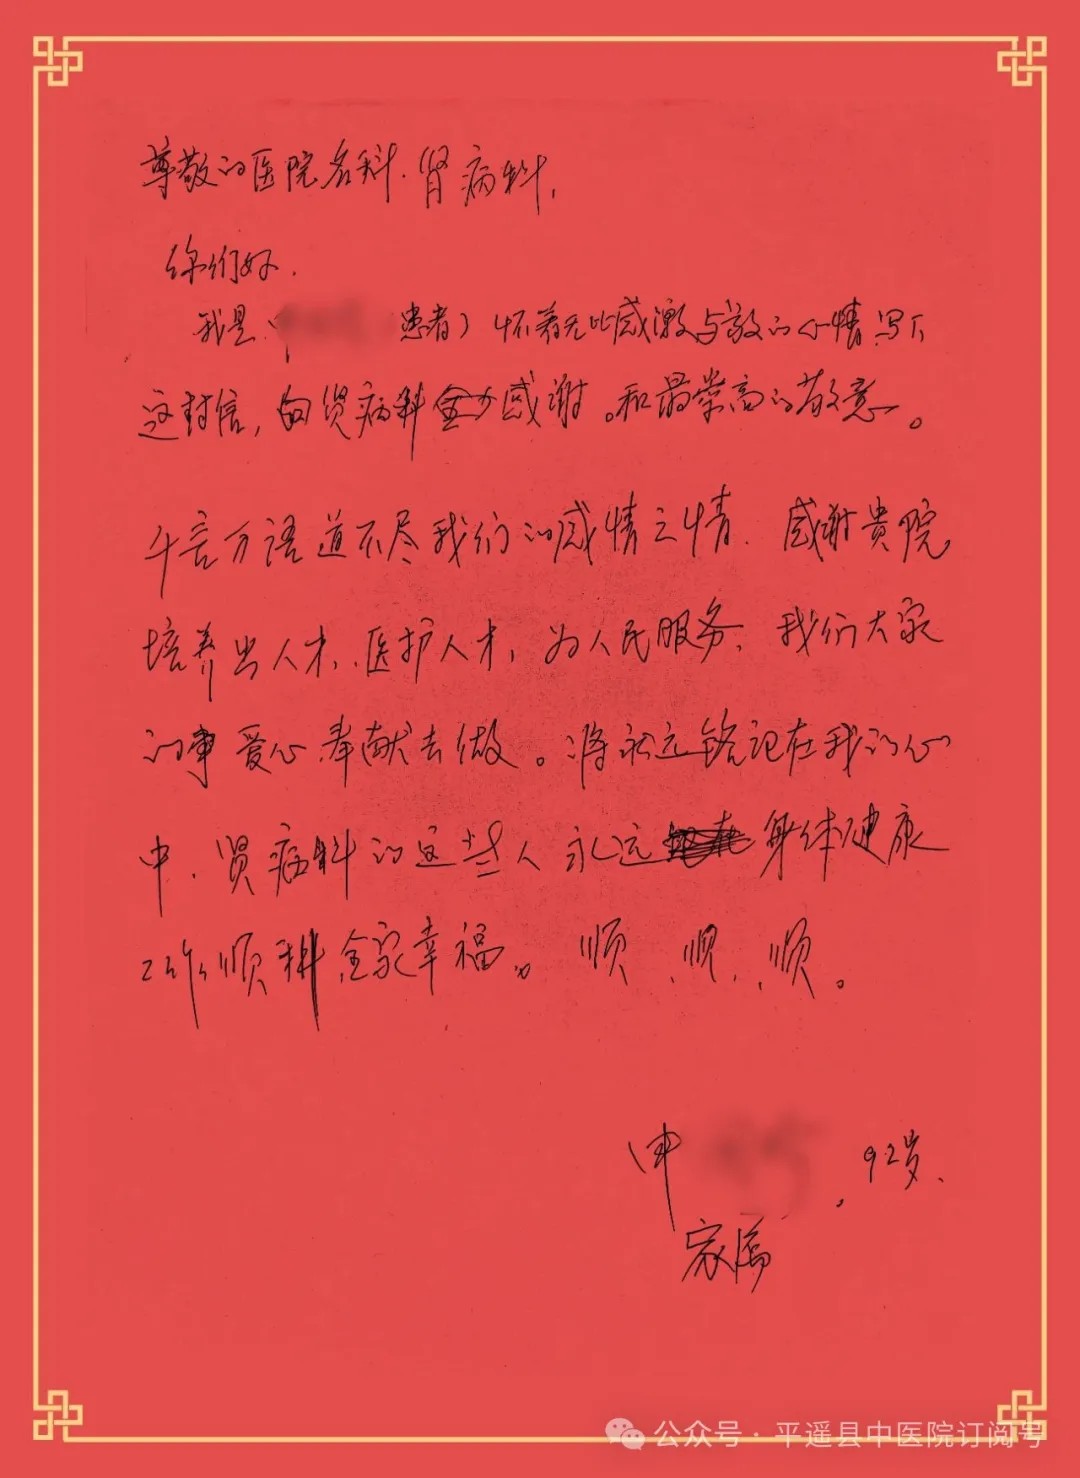 尊敬的医院各科.肾病科,
你们好.
我是.申 患者)怀着无比感激与敬的心情.写下
这封信,向肾病科全力感谢。和最崇高的敬意。
千言万语道不尽我们的感情之情.感谢贵院
培养出人才,.医护人才,为人民服务,我们大家
的事爱心.奉献去做。将永远铭记在我的心
中.肾病科的这些人永远 身体健康
工作顺利全家幸福。顺.顺.顺。
申 。92岁、
家属
公众号·平遥县中医院订阅号